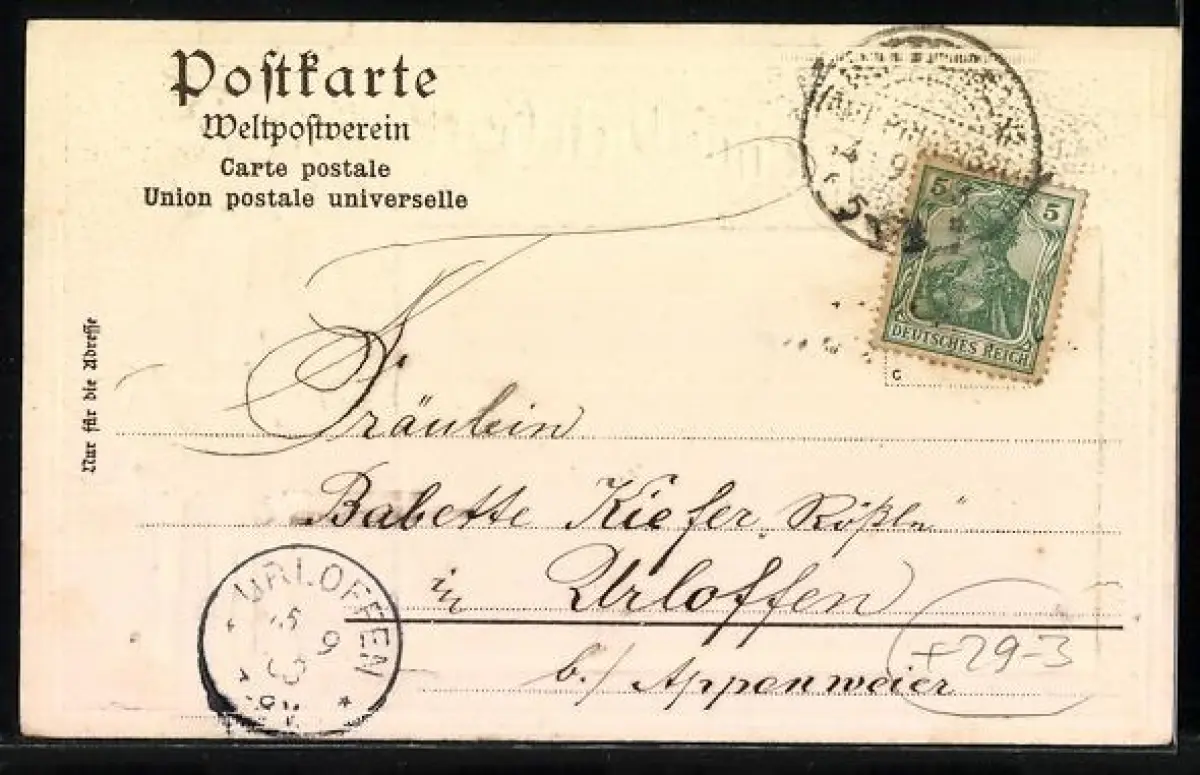 Postkarte
Weltpostverein
Carte postale
Union postale universelle
5 5
DEUTSCHES REICH
C
Nur für die Adresse
Fräulein
Babette Kiefer, „Rößle“
in Urloffen
b./ Appenweier
URLOFFEN
9
+29-3